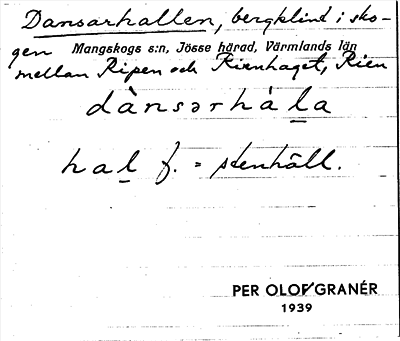 Dansarhallen, bergklint i sko-
gen Mangskogs s:n, Jösse härad, Värmlands län
mellan Ripen och Rienhaget, Rien
dànsərhàl̲a
hal̲ f. = stenhäll.
PER OLOF GRANÉR
1939